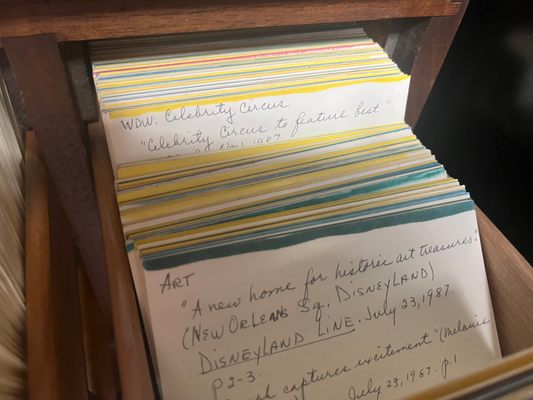 WDW. Celebrity Circus
"Celebrity Circus to feature best"
1987.
ART
"A new home for historic art treasures."
(NEW ORLEANS Sq. DISNEYLAND)
DISNEYLAND LINE. July 23, 1987.
P 2-3.
captures excitement" (Melanie
July 23, 1987. p.1